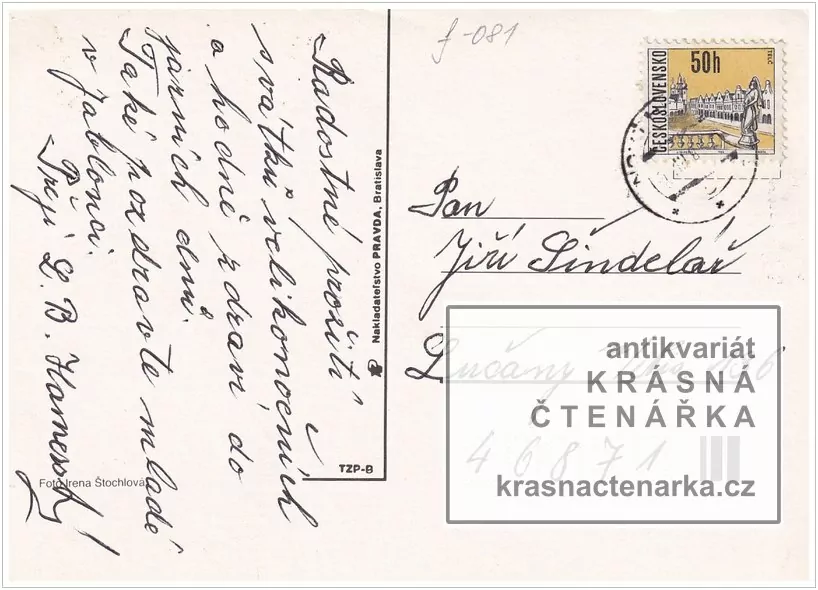 f-081
Radostné prožití
svátků velikonočních
a hodně zdraví do
jarních dnů.
Také pozdravte mladé
v Jablonci.
Přejí L. B.
Foto Irena Štochlová
Nakladateľstvo PRAVDA, Bratislava
TZP-B
ČESKOSLOVENSKO
50h
TELČ
Pan
Jiří Šindelář
Lučany
46871
antikvariát
KRÁSNÁ
ČTENÁŘKA
krasnactenarka.cz